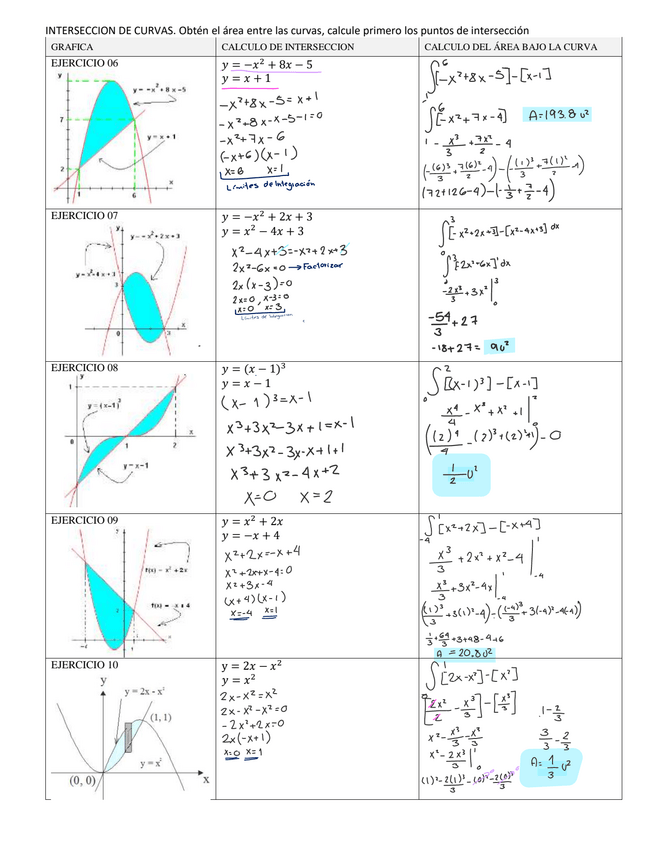 INTERSECCION DE CURVAS. Obtén el área entre las curvas, calcule primero los puntos de intersección
GRAFICA
CALCULO DE INTERSECCION
CALCULO DEL ÁREA BAJO LA CURVA
EJERCICIO 06
y
y = -x² + 8x - 5
7
y = x + 1
2
x
1
6
y = −x² + 8x − 5
y = x + 1
-x²+8x-5=x+1
-x²+8x-x-5-1=0
-x²+7x-6
(-x+6)(x-1)
x=6 x=1
Límites de Integración
∫[-x²+8x-5]-[x-1]
∫[-x²+7x-4] A=193.8 u²
-x³/3+7x²/2-4
(-(6)³/3+7(6)²/2-4)-(-(1)³/3+7(1)²/2-4)
(72+126-4)-(-1/3+7/2-4)
EJERCICIO 07
y
y = -x² + 2x + 3
y = x² - 4x + 3
3
x
0
3
y = −x² + 2x + 3
y = x² − 4x + 3
x²-4x+3=-x²+2x+3
2x²-6x=0→Factorizar
2x(x-3)=0
2x=0, x-3=0
x=0 x=3
Límites de Integración
∫[-x²+2x+3]-[x²-4x+3] dx
∫[-2x²+6x] dx
-2x³/3+3x²
-54/3+27
-18+27= 9u²
EJERCICIO 08
y
1
y = (x-1)³
0
1
2
x
y = x-1
y = (x − 1)³
y = x − 1
(x-1)³=x-1
x³+3x²-3x+1=x-1
x³+3x²-3x-x+1+1
x³+3x²-4x+2
x=0 x=2
∫[(x-1)³]-[x-1]
x⁴/4-x³+x²+1
((2)⁴/4-(2)³+(2)²+1)-0
1/2 u²
EJERCICIO 09
y
f(x) = x² + 2x
f(x) = -x + 4
-4
1
x
y = x² + 2x
y = −x + 4
x²+2x=-x+4
x²+2x+x-4=0
x²+3x-4
(x+4)(x-1)
x=-4 x=1
∫[x²+2x]-[-x+4]
x³/3+2x²+x²-4
x³/3+3x²-4x
((1)³/3+3(1)²-4)-((-4)³/3+3(-4)²-4(-4))
1/3+64/3+3+48-4+6
A=20.8u²
EJERCICIO 10
y
y = 2x - x²
(1, 1)
y = x²
(0, 0)
x
y = 2x − x²
y = x²
2x-x²=x²
2x-x²-x²=0
-2x²+2x=0
2x(-x+1)
x=0 x=1
∫[2x-x²]-[x²]
[2x²/2-x³/3]-[x³/3]
1-2/3
x²-x³/3-x³/3
3/3-2/3
x²-2x³/3
A=1/3 u²
(1)²-2(1)³/3-(0)²-2(0)³/3